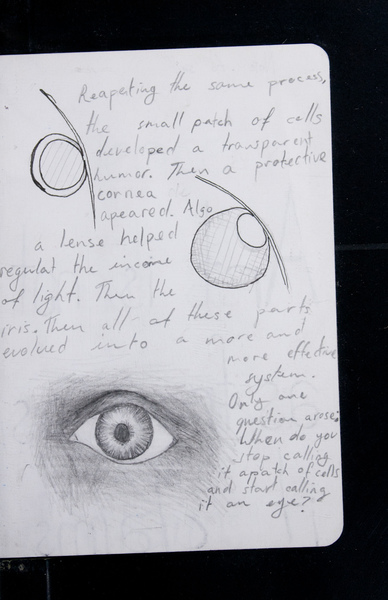 Reapeting the same process,
the small patch of cells
developed a transparent
humor. Then a protective
cornea
apeared. Also
a lense helped
regulat the income
of light. Then the
iris. Then all of these parts
evolved into a more and
more effective
system.
Only one
question arose:
When do you
stop calling
it a patch of cells
and start calling
it an eye?